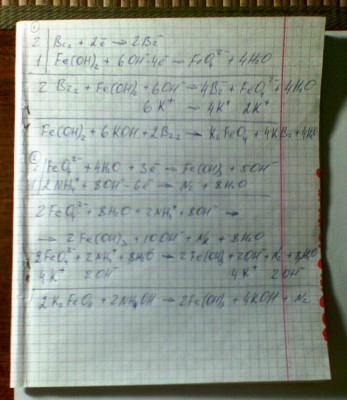 ①
2 | Br₂ + 2ē → 2Br⁻
1 | Fe(OH)₂ + 6OH⁻ - 4ē → FeO₄²⁻ + 4H₂O
2Br₂ + Fe(OH)₂ + 6OH⁻ → 4Br⁻ + FeO₄²⁻ + 4H₂O
6K⁺ → 4K⁺ 2K⁺
Fe(OH)₂ + 6KOH + 2Br₂ → K₂FeO₄ + 4KBr + 4H₂O
②
FeO₄²⁻ + 4H₂O + 3ē → Fe(OH)₃ + 5OH⁻
1 | 2NH₄⁺ + 8OH⁻ - 6ē → N₂ + 8H₂O
2FeO₄²⁻ + 8H₂O + 2NH₄⁺ + 8OH⁻ →
→ 2Fe(OH)₃ + 10OH⁻ + N₂ + 8H₂O
2FeO₄²⁻ + 2NH₄⁺ + 8H₂O → 2Fe(OH)₃ + 2OH⁻ + N₂ + 8H₂O
4K⁺ 2OH⁻ 4K⁺ 2OH⁻
2K₂FeO₄ + 2NH₄OH → 2Fe(OH)₃ + 4KOH + N₂